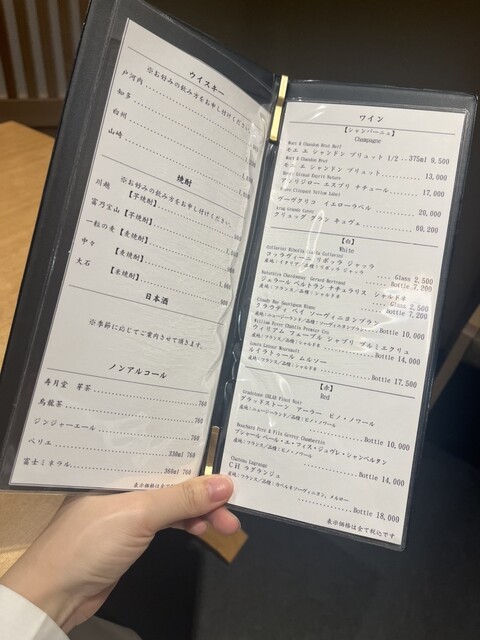 ウイスキー
※お好みの飲み方をお申し付けください。
戸河内
知多
白州
山崎
焼酎
※お好みの飲み方をお申し付けください。
川越 【芋焼酎】
富乃宝山【芋焼酎】
一粒の麦【麦焼酎】
中々 【麦焼酎】
大石 【米焼酎】
日本酒
※季節に応じてご案内させて頂きます。
ノンアルコール
寿月堂 芽茶 700
烏龍茶 700
ジンジャーエール 700
ペリエ 330ml 700
富士ミネラル 700
ワイン
【シャンパーニュ】
Champagne
Moët & Chandon Brut Half
モエ エ シャンドン ブリュット 1/2 375ml 9,500
Moët & Chandon Brut
モエ エ シャンドン ブリュット 13,000
Henri Giraud Esprit Nature
アンリジロー エスプリ ナチュール 17,000
Veuve Clicquot Yellow Label
ヴーヴクリコ イエローラベル 20,000
Krug Grande Cuvée
クリュッグ グラン キュヴェ 69,200
【白】
White
コッラヴィーニ リボッラ ジャッラ Glass 2,500
産地:イタリア/品種:リボッラ ジャッラ Bottle 7,200
Naturalys Chardonnay Gérard Bertrand
ジェラール ベルトラン ナチュラリス シャルドネ Glass 2,500
産地:フランス/品種:シャルドネ Bottle 7,200
Cloudy Bay Sauvignon Blanc
クラウディ ベイ ソーヴィニヨンブラン
産地:ニュージーランド/品種:ソーヴィニヨンブラン Bottle 10,000
William Fevre Chablis Premier Cru
ウィリアム フェーブル シャブリ プルミエクリュ
産地:フランス/品種:シャルドネ Bottle 14,000
Louis Latour Meursault
ルイラトゥール ムルソー
産地:フランス/品種:シャルドネ Bottle 17,500
【赤】
Red
Gladstone URLAR Pinot Noir
グラッドストーン アーラー ピノ・ノワール
産地:ニュージーランド/品種:ピノ・ノワール Bottle 10,000
Bouchard Père & Fils Gevrey Chambertin
ブシャール ペール・エ・フィス・ジュヴレ・シャンベルタン
産地:フランス/品種:ピノ・ノワール Bottle 14,000
Chateau Lagrange
CH ラグランジュ
産地:フランス/品種:カベルネソーヴィニヨン、メルロー
Bottle 18,000
表示価格は全て税込です